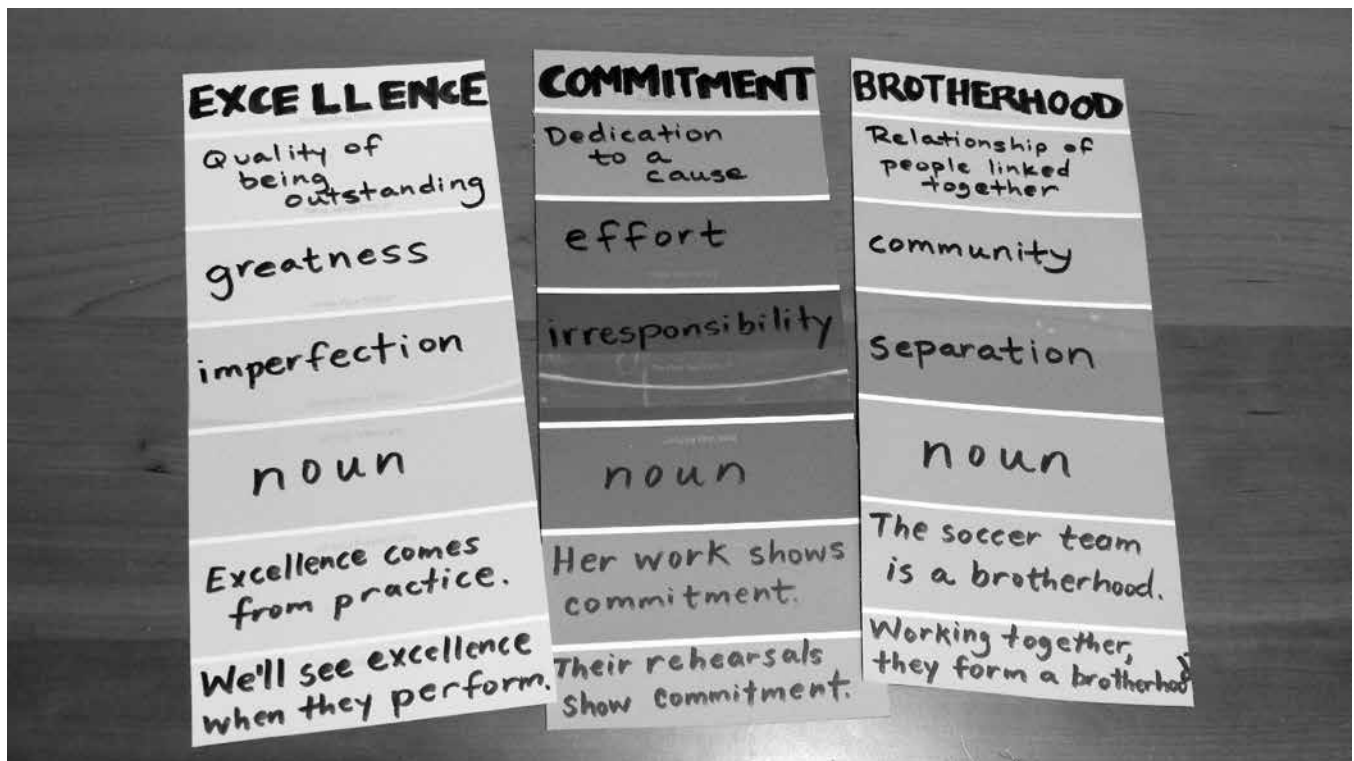 EXCELLENCE
Quality of
being
outstanding
greatness
imperfection
noun
Excellence comes
from practice.
We'll see excellence
when they perform.
COMMITMENT
Dedication
to a
cause
effort
irresponsibility
noun
Her work shows
commitment.
Their rehearsals
show commitment.
BROTHERHOOD
Relationship of
people linked
together
community
separation
noun
The soccer team
is a brotherhood.
Working together,
they form a brotherhood